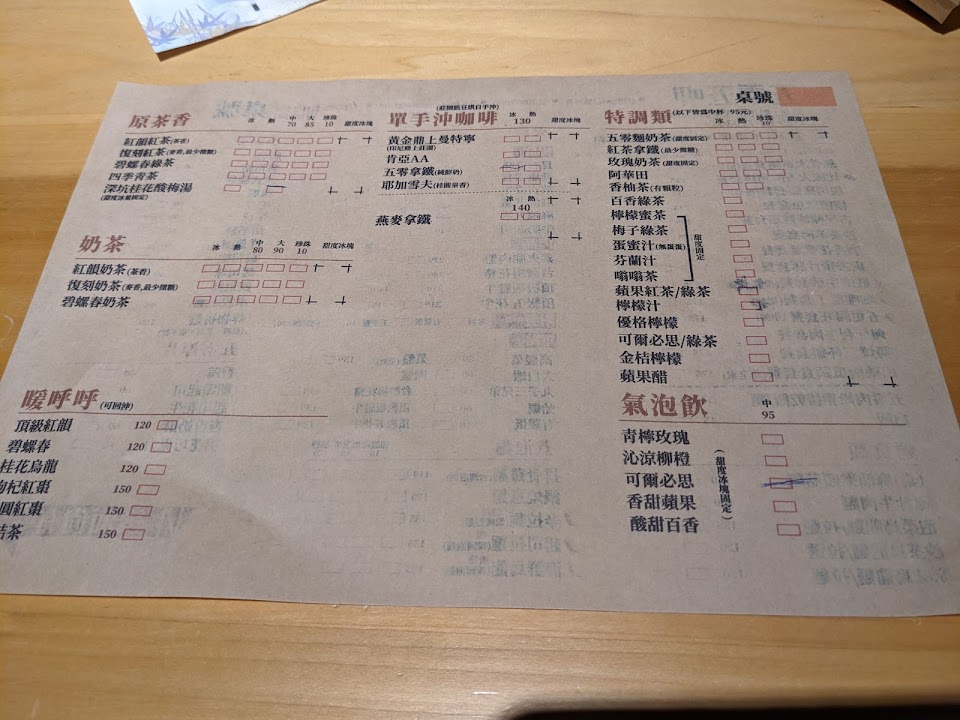 桌號
原茶香
冰 熱 中 大 珍珠 甜度冰塊
70 85 10
紅韻紅茶(茶香)
復刻紅茶(麥香,最少微糖)
碧螺春綠茶
四季青茶
深坑桂花酸梅湯
(甜度冰量固定)
奶茶
冰 熱 中 大 珍珠 甜度冰塊
80 90 10
紅韻奶茶(茶香)
復刻奶茶(麥香,最少微糖)
碧螺春奶茶
暖呼呼(可回沖)
頂級紅韻 120
碧螺春 120
桂花烏龍 120
枸杞紅棗 150
圓紅棗 150
茶 150
(莊園級豆烘自手沖)
單手沖咖啡
冰 熱 甜度冰塊
130
黃金鼎上曼特寧
(印尼鼎上莊園)
肯亞AA
五零拿鐵(純鮮奶)
耶加雪夫(桂圓果香)
冰 熱
140
燕麥拿鐵
特調類(以下皆為中杯 95元)
冰 熱 珍珠 甜度冰塊
10
五零麵奶茶(甜度固定)
紅茶拿鐵(最少微糖)
玫瑰奶茶(甜度固定)
阿華田
香柚茶(有顆粒)
百香綠茶
檸檬蜜茶
梅子綠茶
蛋蜜汁(無蛋蛋)
芬蘭汁
嗡嗡茶
甜度固定
蘋果紅茶/綠茶
檸檬汁
優格檸檬
可爾必思/綠茶
金桔檸檬
蘋果醋
氣泡飲
中
95
青檸玫瑰
沁涼柳橙
可爾必思
香甜蘋果
酸甜百香
(甜度冰塊固定)